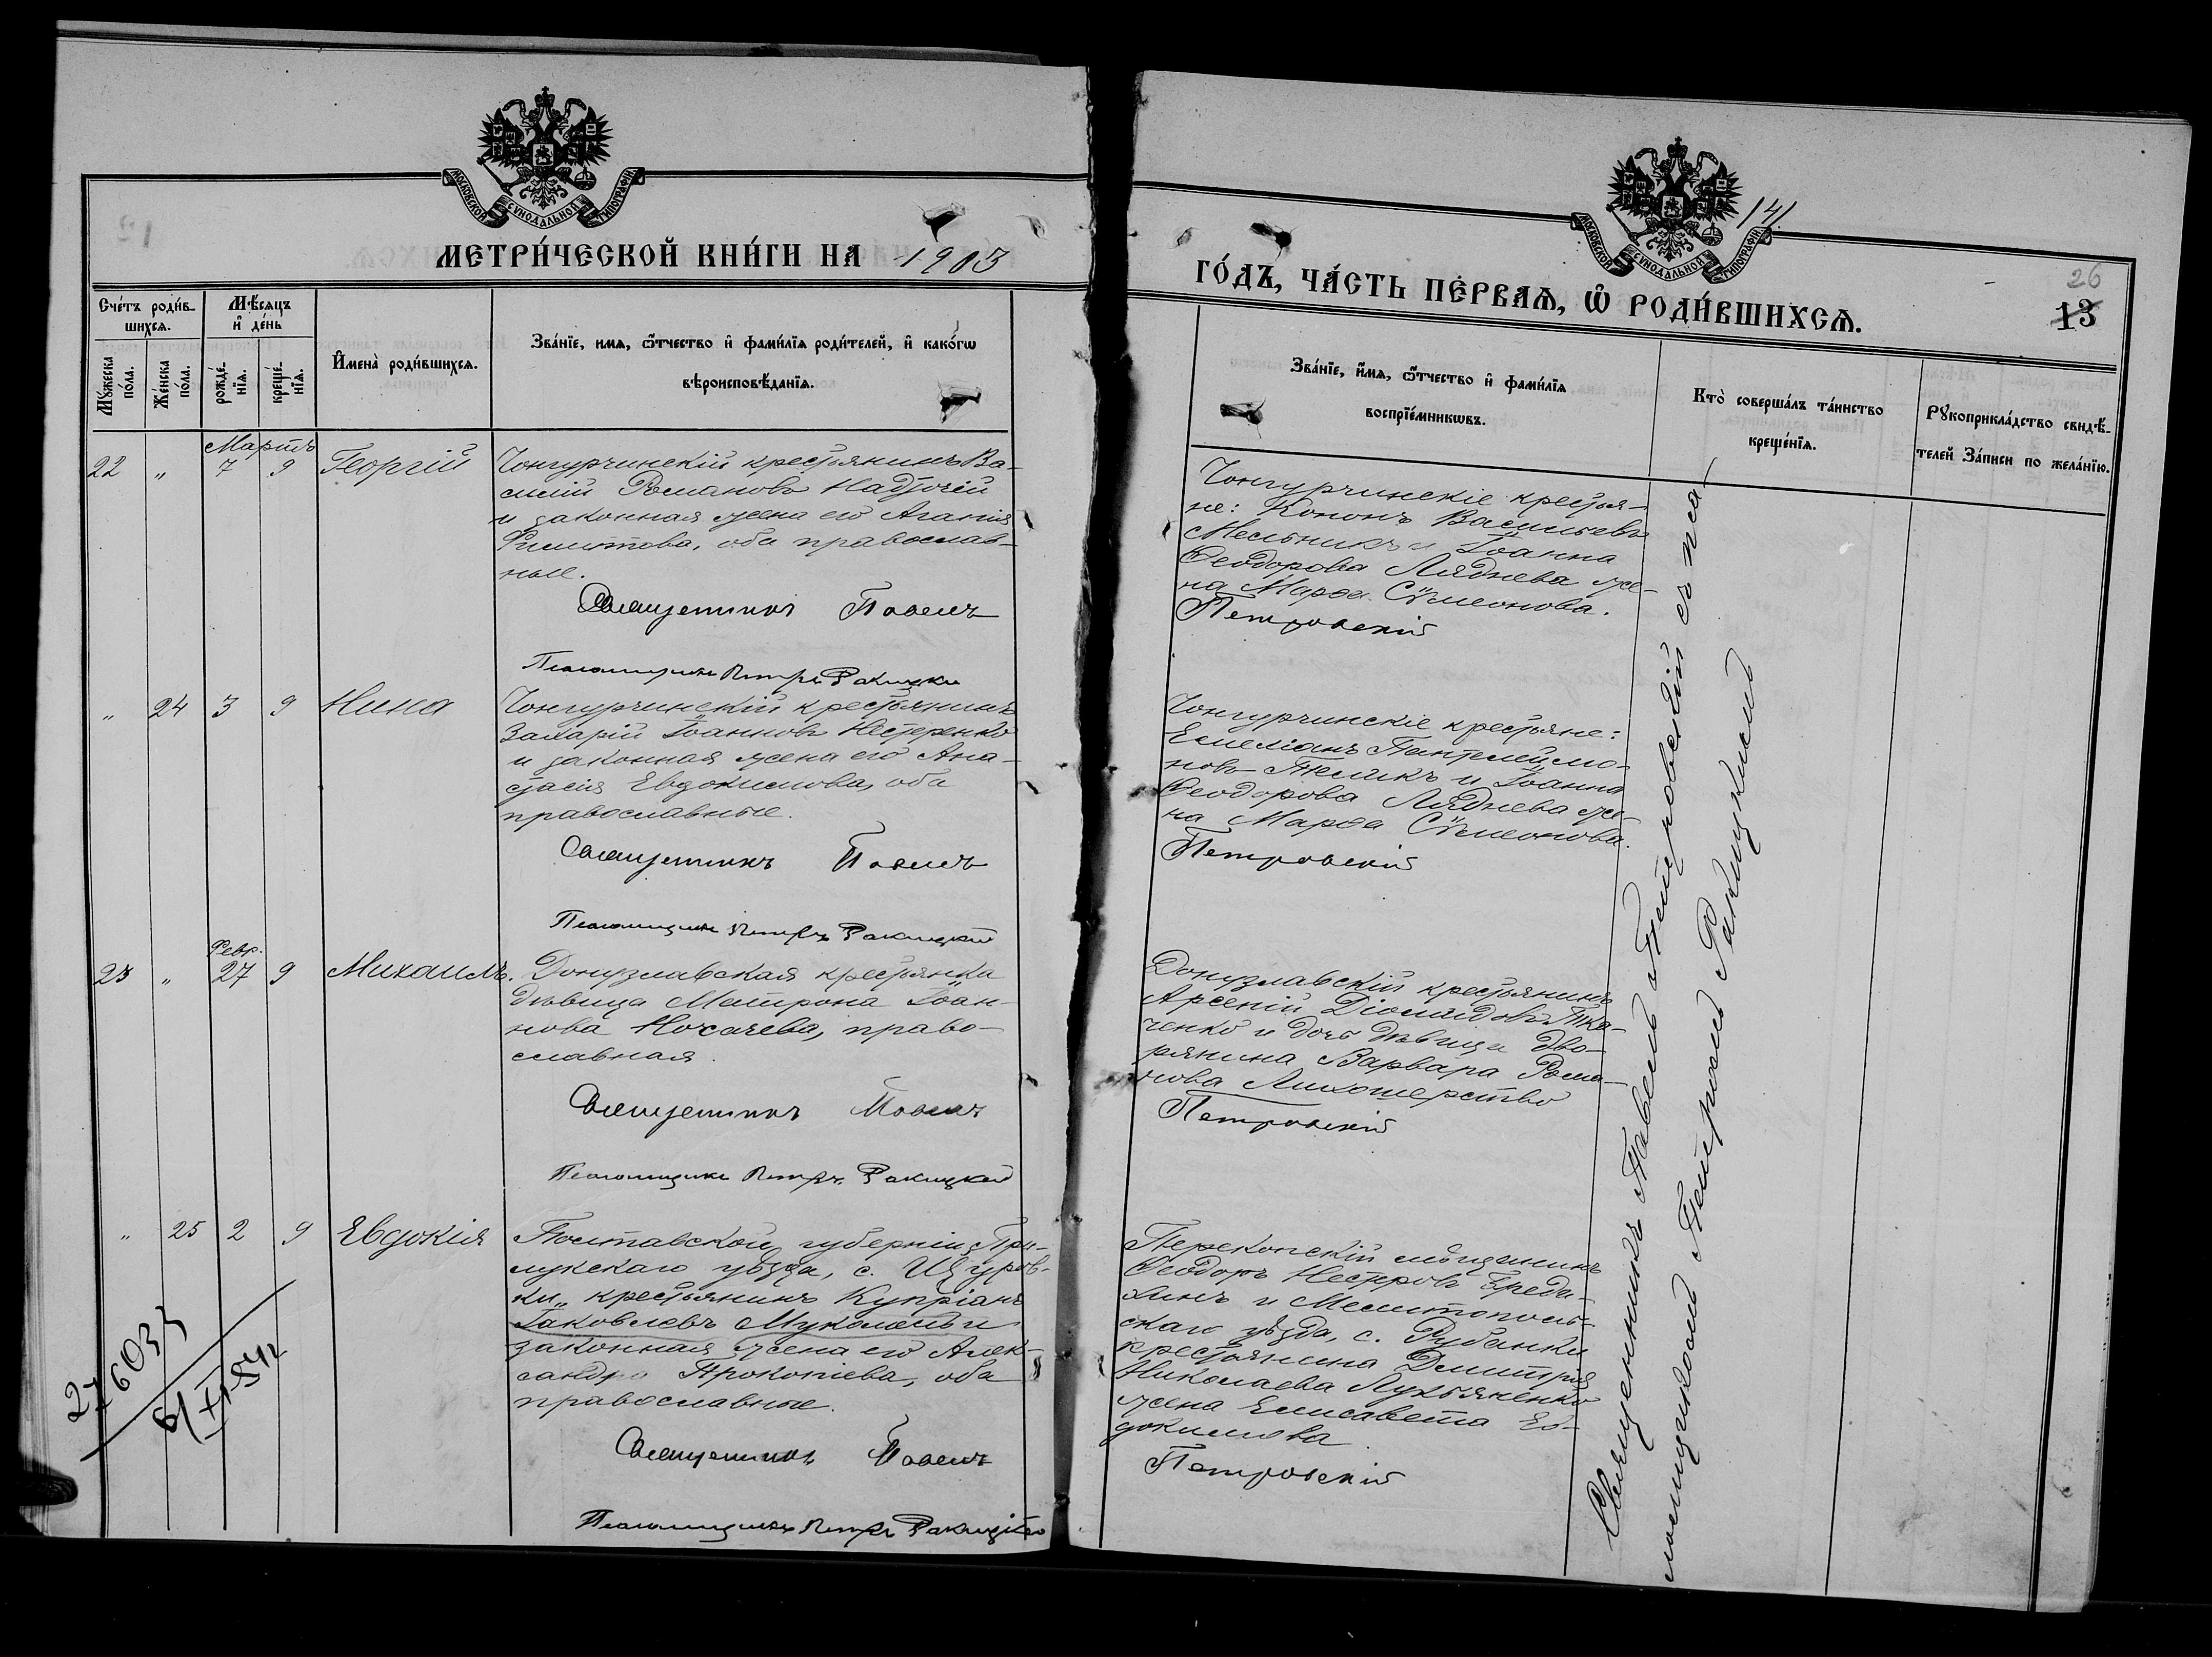 МОСКОВСКОЙ СѴНОДАЛЬНОЙ ТИПОГРАФІИ
МЕТРИ́ЧЕСКОЙ КНИ́ГИ НА 1903
Сче́тъ роди́в-
шихсѧ.
Мѣ́сѧцъ
и҆ де́нь
Мꙋ́жеска
по́ла.
Же́нска
по́ла.
рожде́-
нїѧ.
креще́-
нїѧ.
И҆мена̀ роди́вшихсѧ.
Зва́нїе, имѧ, ѿтчество и҆ фами́лїѧ роди́телей, и҆ како́гѡ
вѣроисповѣ́данїѧ.
Мартъ
22 " 7 9 Георгій
Чонгурчинскій крестьянинъ Ва-
силій Романовъ Надточій
и законная жена его Агапія
Филитова, оба православ-
ные.
Священникъ Павелъ
Псаломщикъ Петръ Ракицкій
" 24 3 9 Нина
Чонгурчинскій крестьянинъ
Захарій Іоанновъ Нестеренко
и законная жена его Ана-
стасія Евдокимова, оба
православные.
Священникъ Павелъ
Псаломщикъ Петръ Ракицкій
Февр.
23 " 27 9 Михаилъ.
Донузлавская крестьянка
дѣвица Матрона Іоан-
нова Ночачева, право-
славная.
Священникъ Павелъ
Псаломщикъ Петръ Ракицкій
" 25 2 9 Евдокія
Полтавской губерніи, При-
лукскаго уѣзда, с. Ищуров-
ки, крестьянинъ Купріанъ
Іаковлевъ Муколовъ и
законная жена его Алек-
сандра Прокопіева, оба
православные.
Священникъ Павелъ
Псаломщикъ Петръ Ракицкій
МОСКОВСКОЙ СѴНОДАЛЬНОЙ ТИПОГРАФІИ
14
ГО́ДЪ, ЧА́СТЬ ПЕ́РВАѦ, Ѡ҆ РОДИ́ВШИХСѦ.
26
13
Зва́нїе, и҆́мѧ, ѿтчество и҆ фами́лїѧ
воспрїе́мникѡвъ.
Кто̀ соверша́лъ та́инство
креще́нїѧ.
Рꙋкоприкла́дство свидѣ́-
телей За́писи по жела́нїю.
Чонгурчинскіе крестья-
не: Кононъ Васильевъ
Мельникъ и Іоанна
Ѳеодорова Ляднева же-
на Марѳа Сѵмеонова.
Петровскій
Чонгурчинскіе крестьяне:
Емеліанъ Пантелеймо-
новъ Теликъ и Іоанна
Ѳеодорова Ляднева же-
на Марѳа Сѵмеонова.
Петровскій
Донузлавскій крестьянинъ
Арсеній Діомидовъ Тка-
ченко и дочь дѣвица дво-
рянина Варвара Рома-
нова Лихошерство
Петровскій
Перекопскій мѣщанинъ
Ѳеодоръ Нестеровъ Бреда-
хинъ и Мелитополь-
скаго уѣзда, с. Рубанки
крестьянина Димитрія
Николаева Лукьяненко
жена Елисавета Ев-
докимова
Петровскій
Священникъ Павелъ Петровскій съ пса-
ломщикомъ Петромъ Ракицкимъ